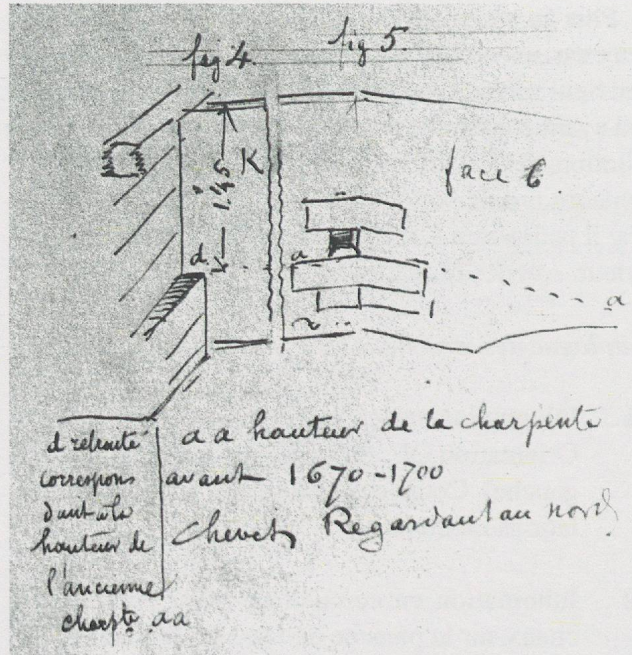 fig 4.
fig 5.
K
1.45
face 6.
d
a
a
d retraite
correspon
dant à la
hauteur de
l'ancienne
charpte aa
a a hauteur de la charpente
avant 1670-1700
Chevet Regardant au nord